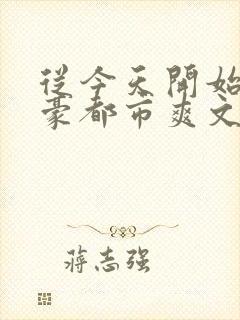 从今天开始
豪都市爽文
蒋志强